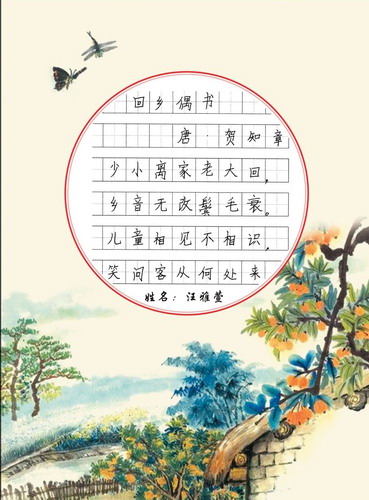 回乡偶书
唐·贺知章
少小离家老大回，
乡音无改鬓毛衰。
儿童相见不相识，
笑问客从何处来
姓名：汪雅萱